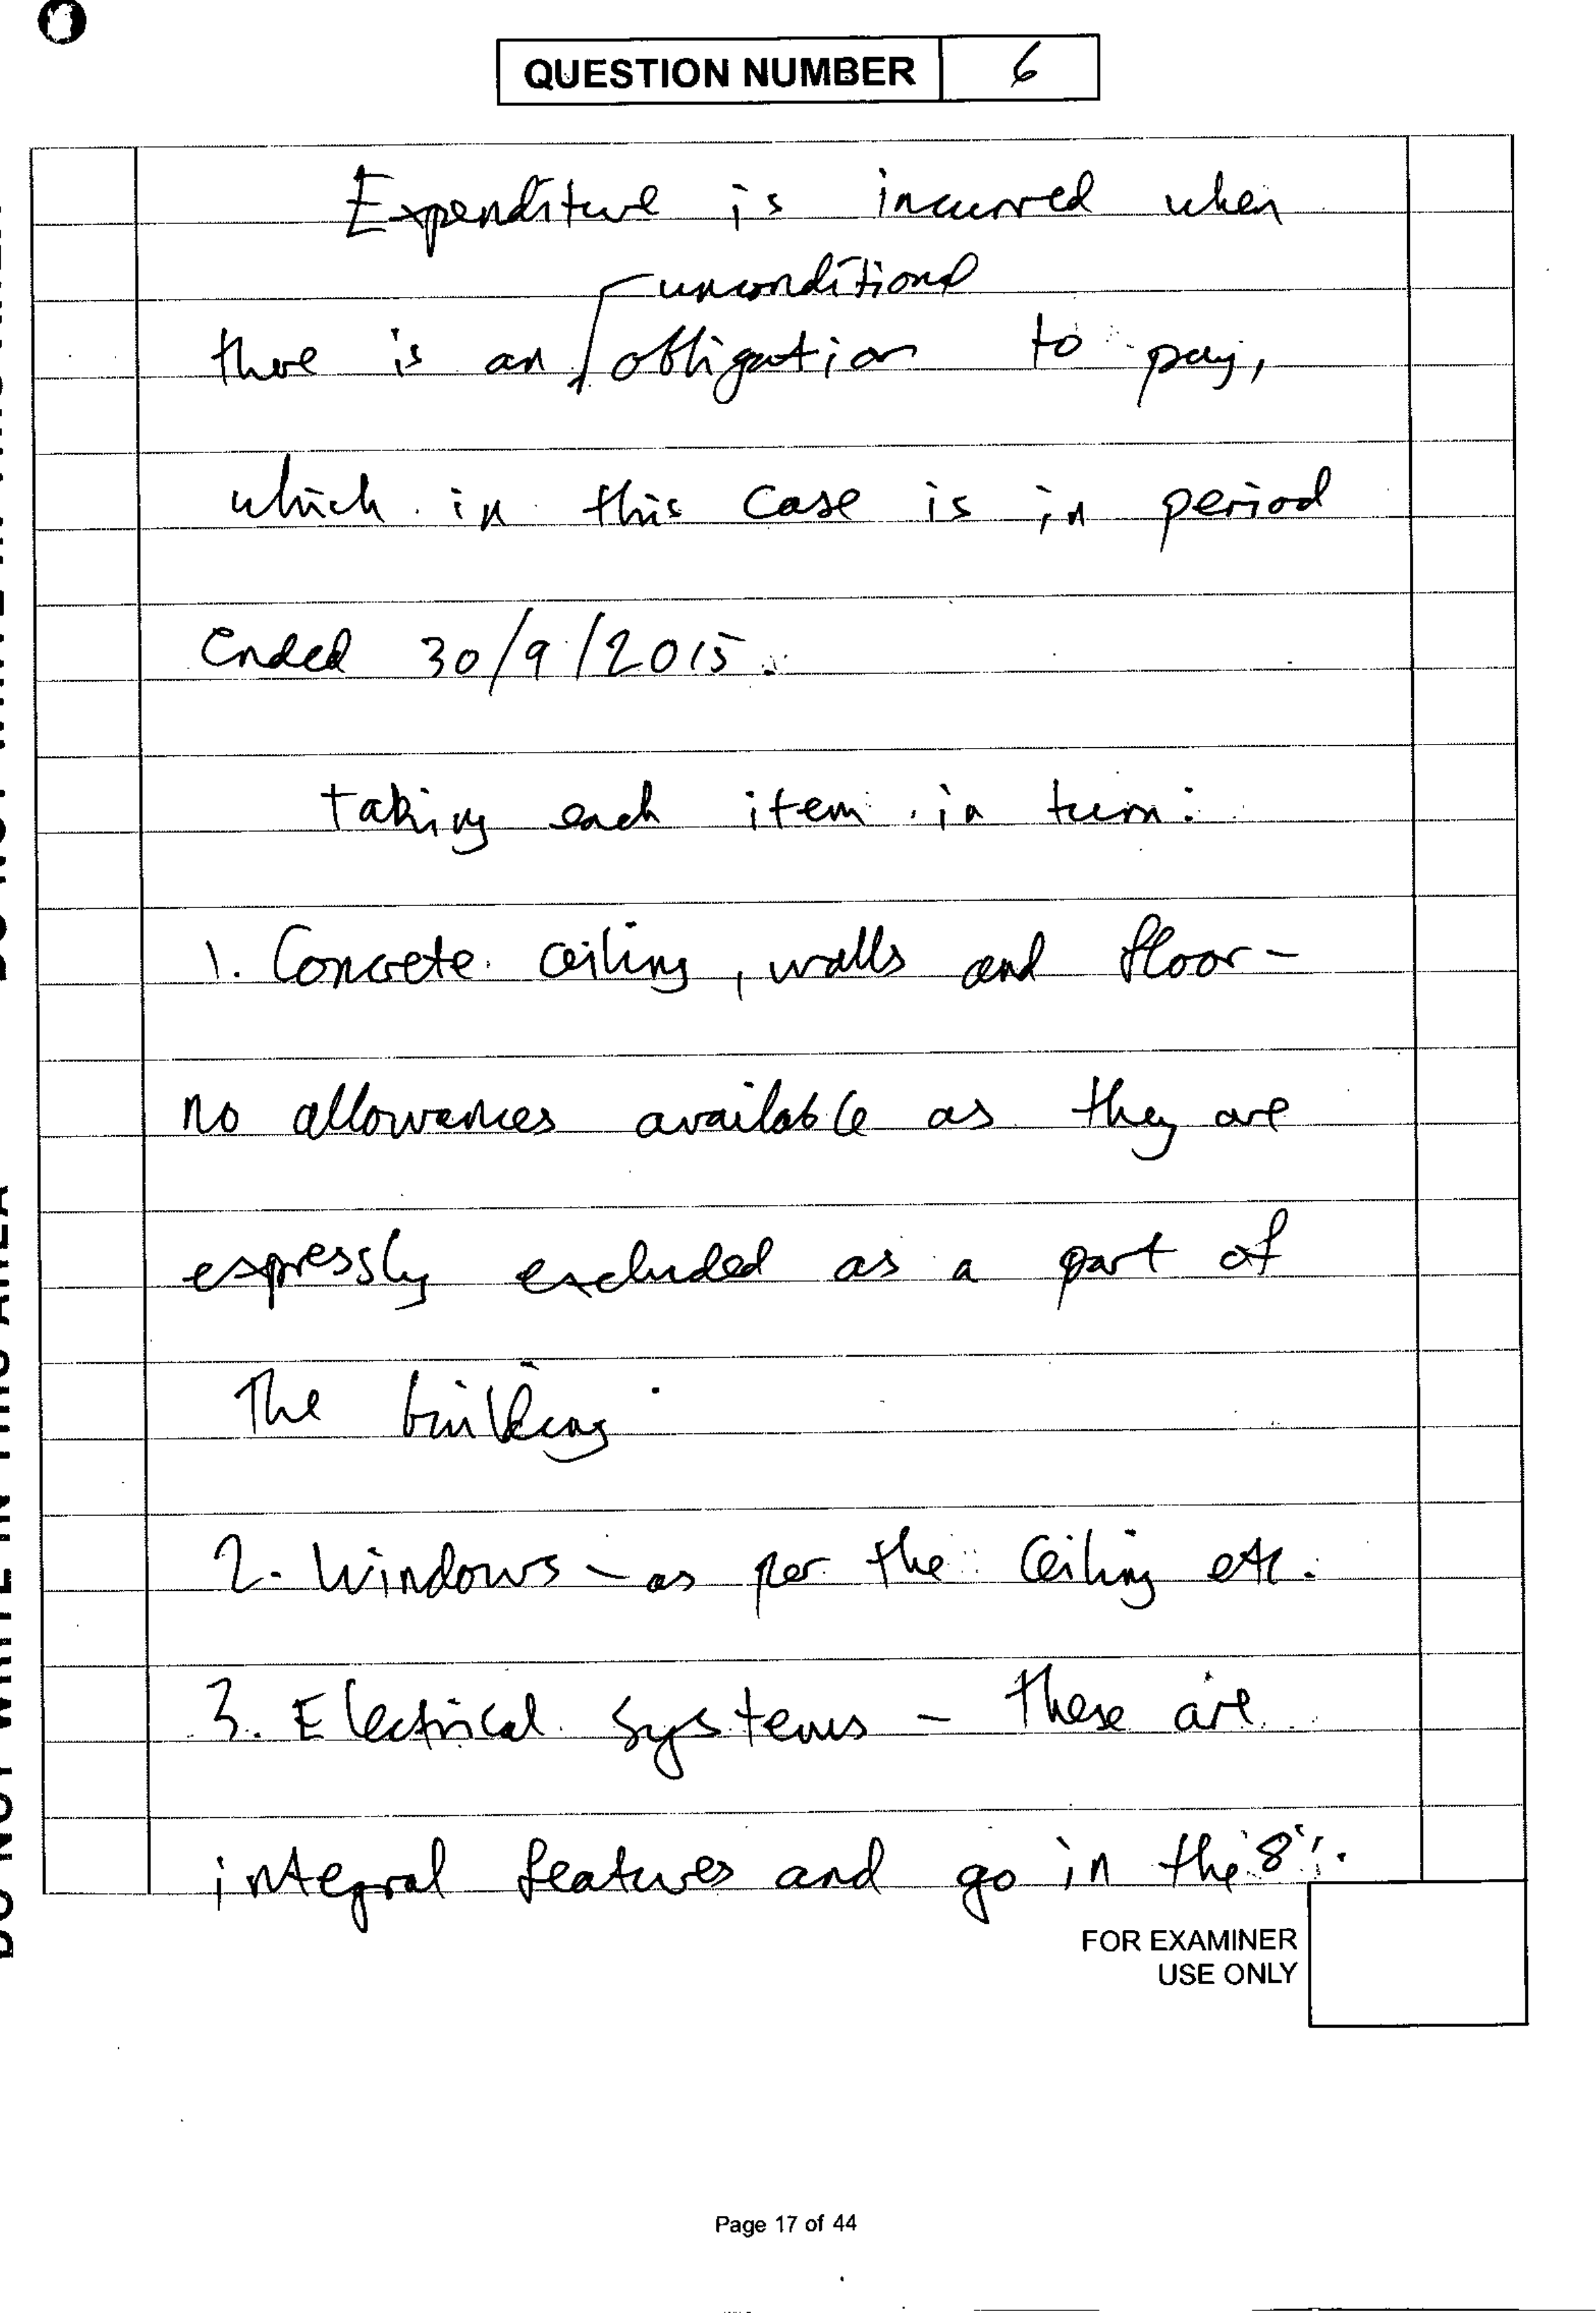 QUESTION NUMBER 6
Expenditure is incurred when
unconditional
there is an obligation to pay,
which in this case is in period
Ended 30/9/2015.
Taking each item in turn:
1. Concrete ceiling, walls and floor -
no allowances available as they are
expressly excluded as a part of
The building.
2. Windows - as per the ceiling etc.
3. Electrical systems - These are
integral features and go in the 8%
FOR EXAMINER
USE ONLY
Page 17 of 44